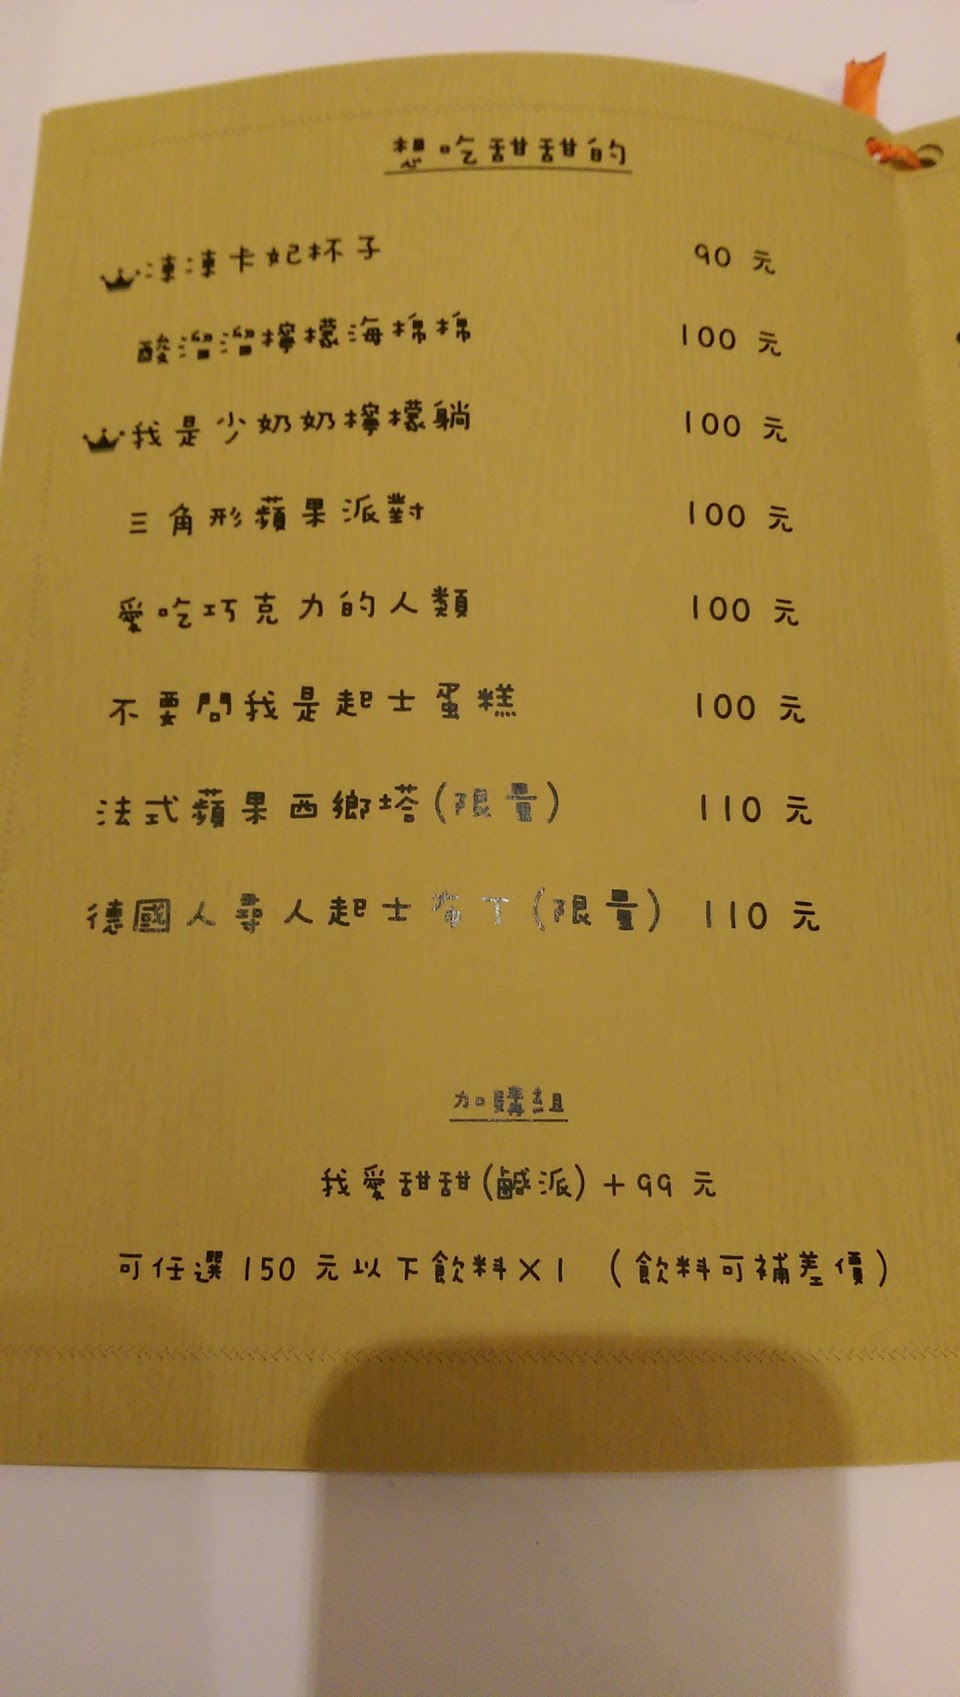 想吃甜甜的
凍凍卡妃杯子 90 元
酸溜溜檸檬海棉棉 100 元
我是少奶奶檸檬躺 100 元
三角形蘋果派對 100 元
愛吃巧克力的人類 100 元
不要問我是起士蛋糕 100 元
法式蘋果西鄉塔(限量) 110 元
德國人尋人起士布丁(限量) 110 元
加購組
我愛甜甜(鹹派)+99 元
可任選150 元以下飲料×1 (飲料可補差價)